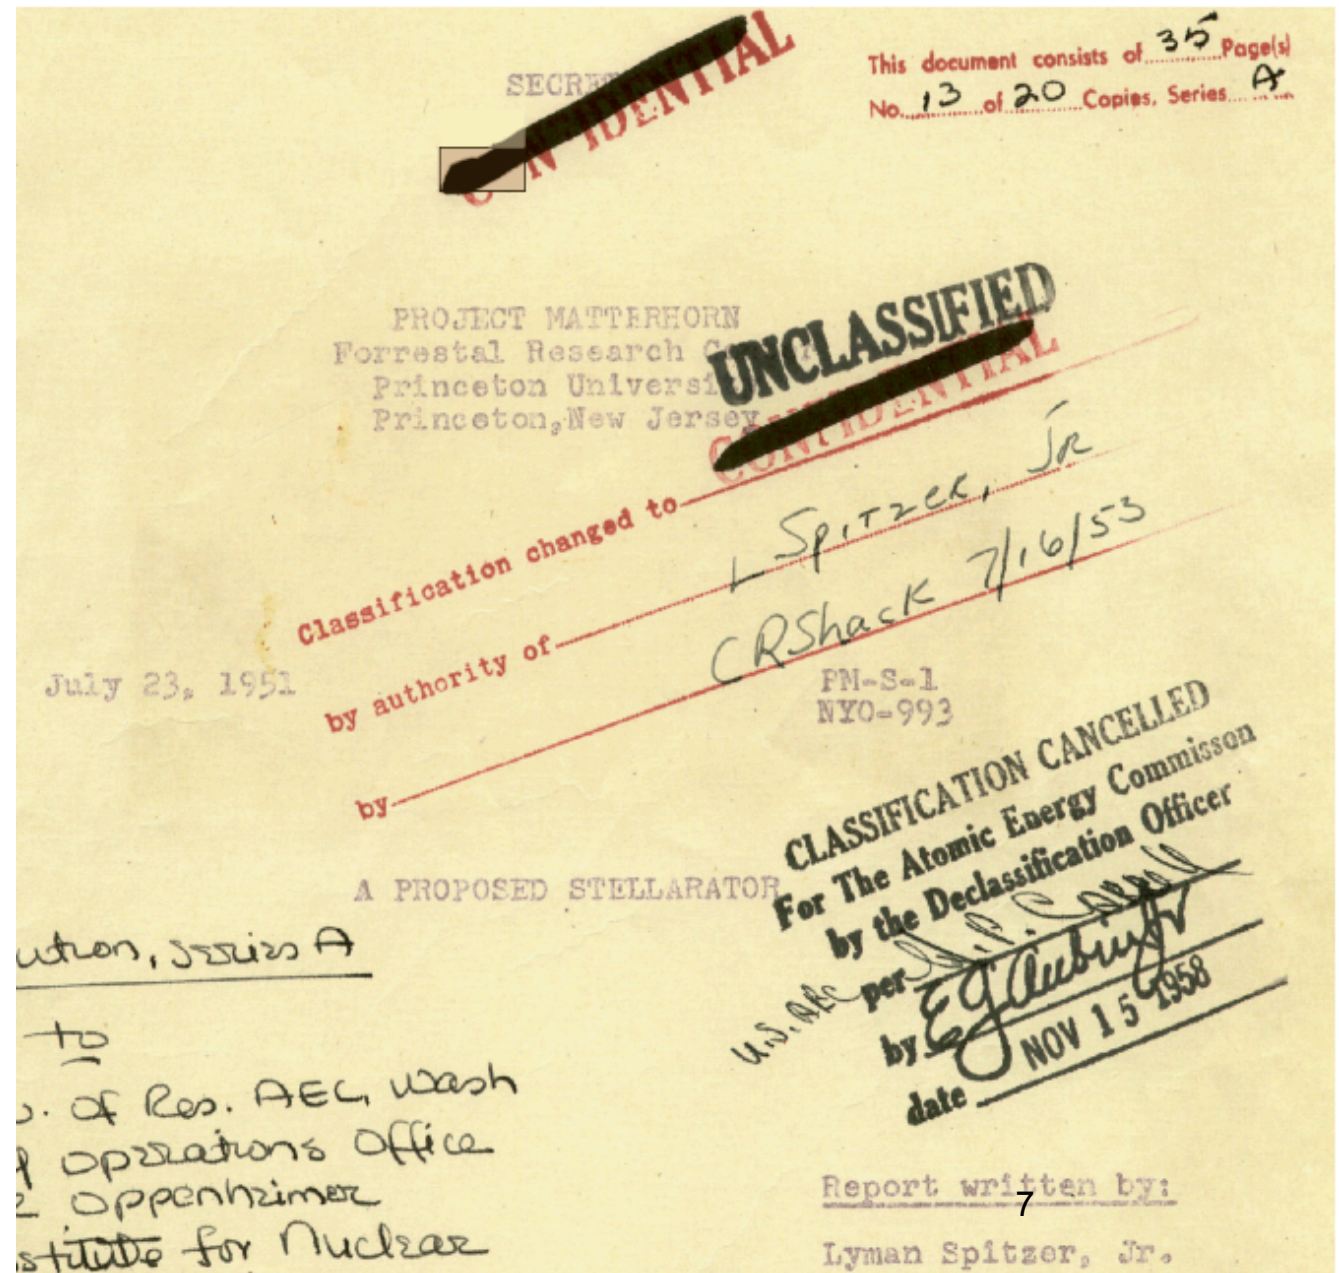 SECRE
CONFIDENTIAL
This document consists of 35 Page(s)
No. 13 of 20 Copies, Series A
PROJECT MATTERHORN
Forrestal Research
Princeton Universi
Princeton, New Jersey
UNCLASSIFIED
CONFIDENTIAL
Classification changed to
by authority of L Spitzer, Jr
by CRShack 7/16/53
July 23, 1951
PM-S-1
NYO-993
A PROPOSED STELLARATOR
CLASSIFICATION CANCELLED
For The Atomic Energy Commisson
by the Declassification Officer
U.S. AEC per
by
date NOV 15 1958
ution, Series A
to
. of Res. AEC, Wash
Operations Office
Oppenheimer
stitute for Nuclear
Report written by:
7
Lyman Spitzer, Jr.